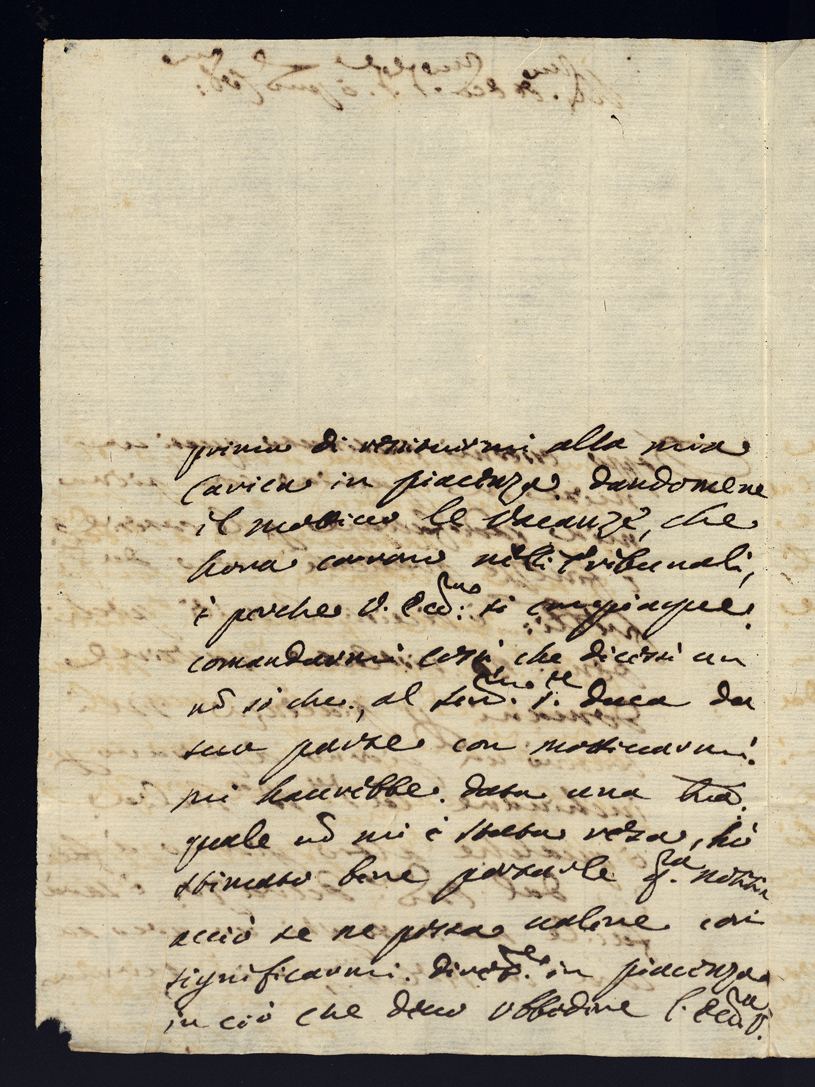 prima di restituirmi alla mia
Carica in piacenza, dandomene
il mottiuo le Vacanze, che
hora corrono nelli Tribunali,
è perche V. Ecc.ma si compiacque
comandarmi cosi, che dicessi un
nõ sò che, al Ser.mo S.re Duca da
sua parte con mottiuarmi
mi haurebbe data una lr̃a,
quale nõ mi è stata resa, hò
stimato bene portarle q.ta notitia
acciò se ne possa ualere con
significarmi in piacenza
in ciò che deuo Vbbidire l'Ecc.za V.